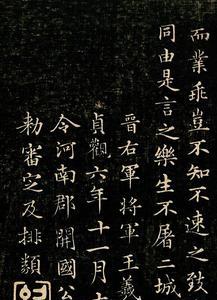 而業乖豈不知不速之致
同由是言之樂生不屠二城
晉右軍將軍王羲
貞觀六年十一月
令河南郡開國公
勑審定及排類